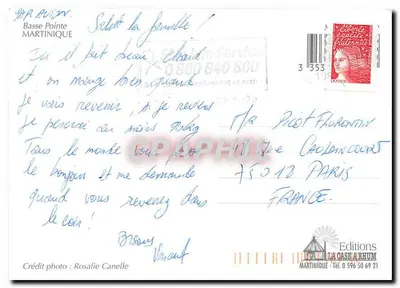 PAR AVION
Basse Pointe
MARTINIQUE
Salut la famille!
Ici il fait beau, chaud
et on mange bien quand
je vais revenir, si je reviens
je peserai au moins
Tous le monde vous
le bonjour et me demande
quand vous revenez dans
le coin!
Bisous
Vincent
Service
0 800 840 800
3 353
LIBERTÉ
ÉGALITÉ
FRATERNITÉ
PICOT Florentin
11 rue CAULAINCOURT
75018 PARIS
FRANCE.
Crédit photo : Rosalie Canelle
Editions
LA CASE A RHUM
MARTINIQUE - Tél 0 596 50 69 21